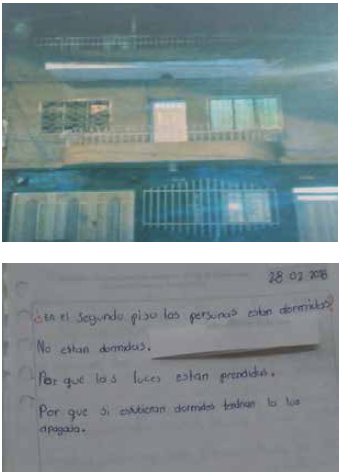 28 02 2018
¿en el segundo piso las personas estan dormidas?
No estan dormidas.
Por que las luces están prendidas.
Por que si estubieran dormidos tendrian la luz
apagada.